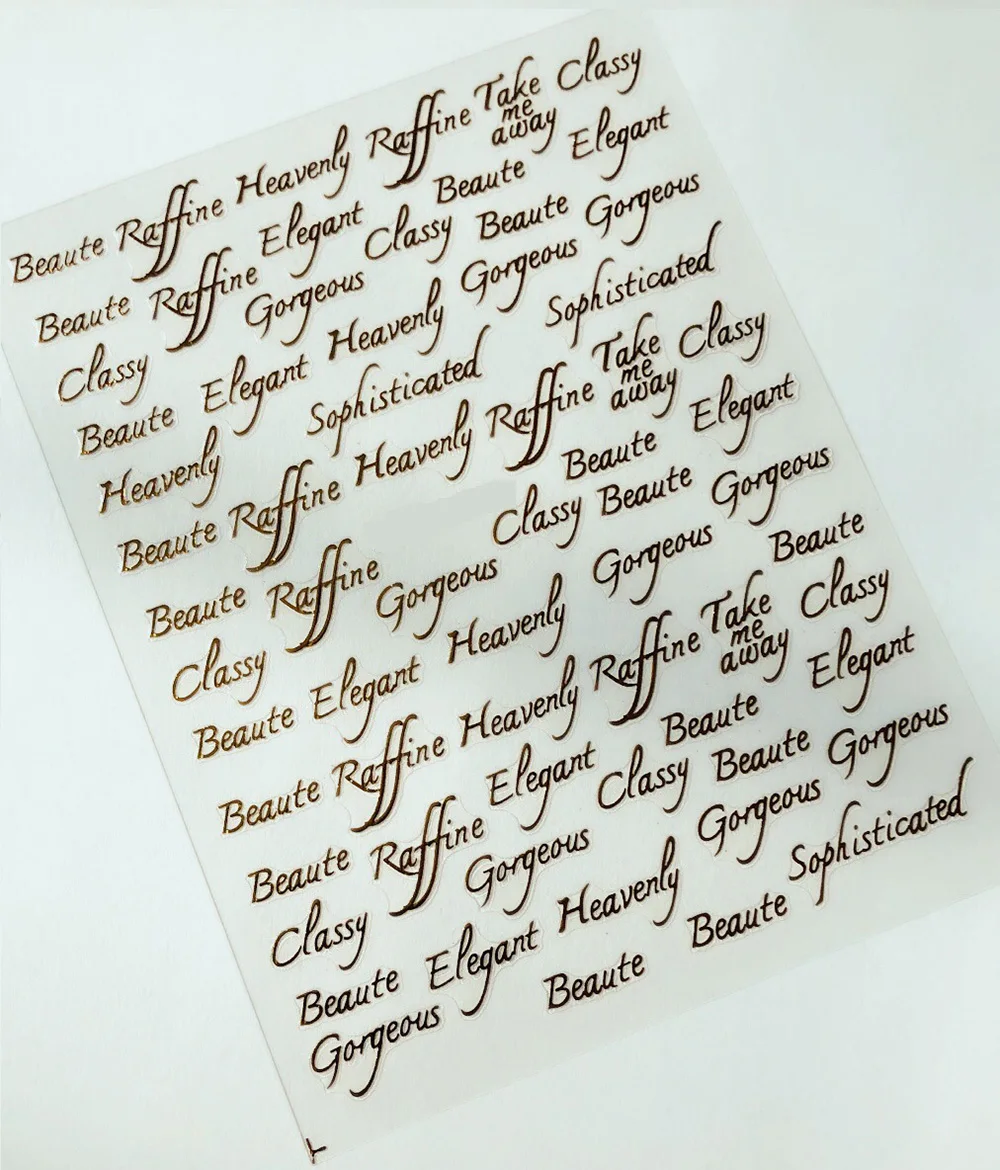 Beaute Raffine Heavenly Raffine Take me away Classy
Beaute Raffine Elegant Beaute Elegant
Classy Gorgeous Classy Beaute Gorgeous
Beaute Elegant Heavenly Gorgeous
Heavenly Sophisticated Sophisticated
Beaute Raffine Heavenly Raffine Take me away Classy
Beaute Raffine Beaute Elegant
Classy Gorgeous Classy Beaute Gorgeous
Beaute Elegant Heavenly Gorgeous Beaute
Beaute Raffine Heavenly Raffine Take me away Classy
Beaute Raffine Elegant Beaute Elegant
Classy Gorgeous Classy Beaute Gorgeous
Beaute Elegant Heavenly Gorgeous
Gorgeous Beaute Beaute Sophisticated